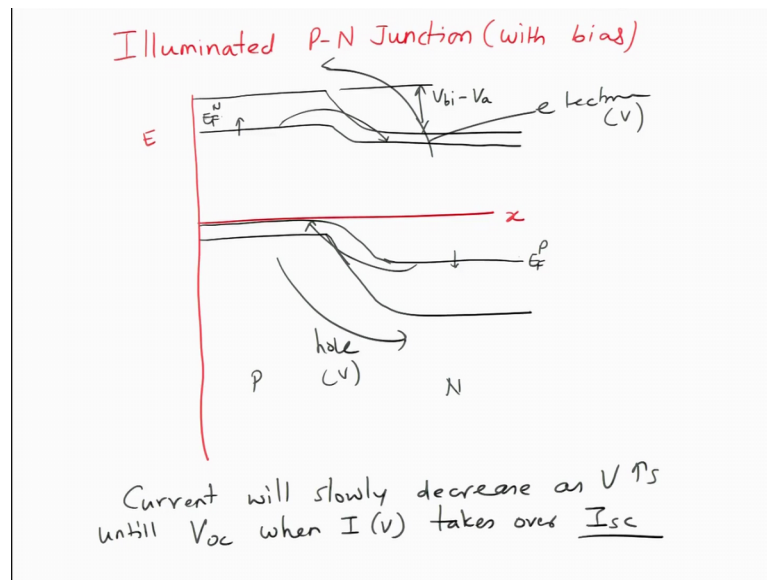 Illuminated P-N Junction (with bias)
Vbi-Va
EFN
E
electron
(V)
x
EFP
hole
(V)
P
N
Current will slowly decrease as V ↑s
untill Voc when I (V) takes over Isc